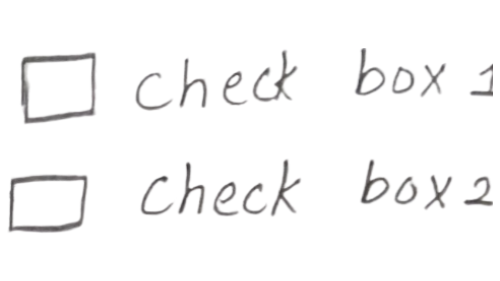 ☐ check box 1
☐ check box 2